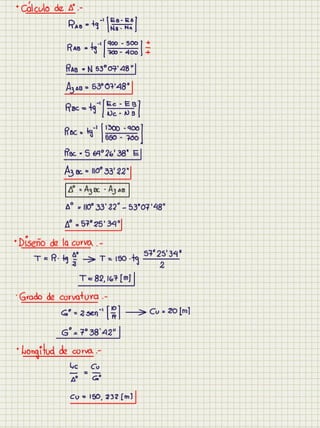 • Cálculo de Δ° .-
R_AB = tg⁻¹ [E_B - E_A / N_B - N_A]
R_AB = tg⁻¹ [900 - 500 / 700 - 400] + / +
R_AB = N 53° 07' 48"
Az_AB = 53° 07' 48"
R_BC = tg⁻¹ [E_C - E_B / N_C - N_B]
R_BC = tg⁻¹ [1300 - 900 / 550 - 700]
R_BC = S 69° 26' 38" E
Az_BC = 110° 33' 22"
Δ° = Az_BC - Az_AB
Δ° = 110° 33' 22" - 53° 07' 48"
Δ° = 57° 25' 34"
• Diseño de la curva .-
T = R · tg Δ°/2 → T = 150 · tg 57° 25' 34" / 2
T = 82,167 [m]
• Grado de curvatura .-
G° = 2 sen⁻¹ [10 / R] → Cu = 20 [m]
G° = 7° 38' 42"
• Longitud de curva .-
Lc / Δ° = Cu / G°
Cu = 150, 232 [m]